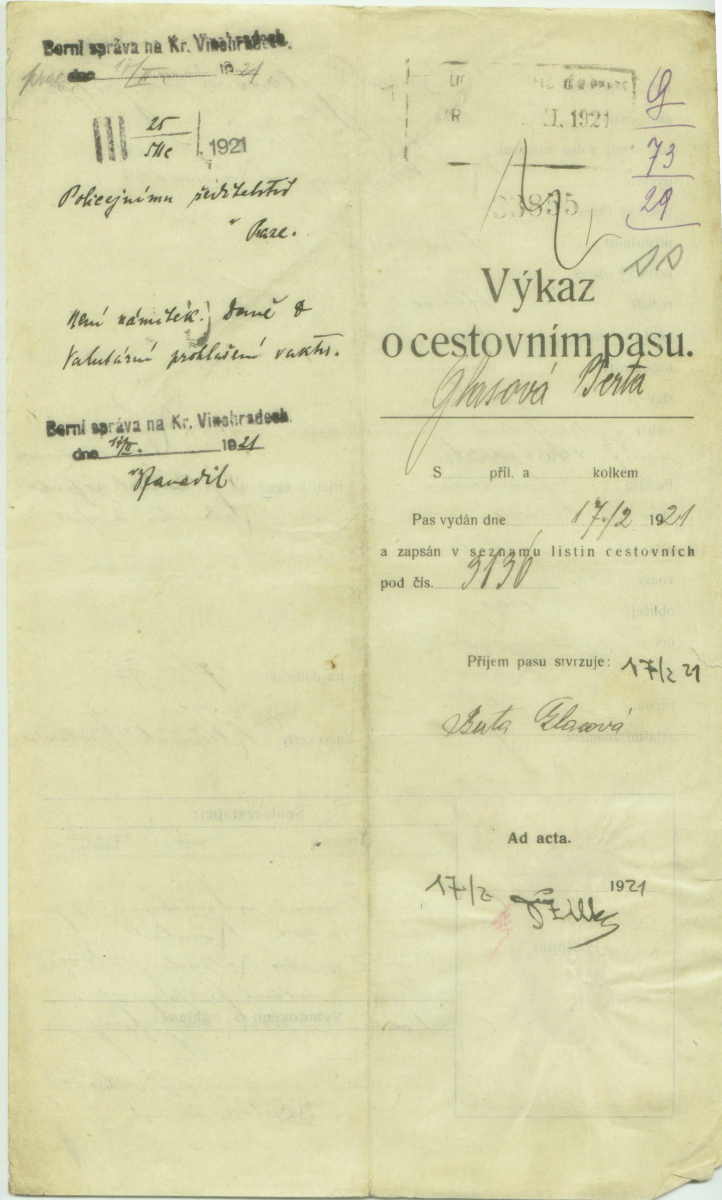 Berní správa na Kr. Vinohradech.
dne 17/II 1921.
III 25 1921
Policejnímu ředitelství
v Praze.
Není námitek. Daně &
Valutární prohlášení
Berní správa na Kr. Vinohradech.
dne 17/II. 1921
1921
33835
G
73
29
Výkaz
o cestovním pasu.
Glasová Berta
S příl. a kolkem
Pas vydán dne 17./2 1921
a zapsán v seznamu listin cestovních
pod čís. 3130
Příjem pasu stvrzuje: 17/2 21
Berta Glasová
Ad acta.
17/2 1921